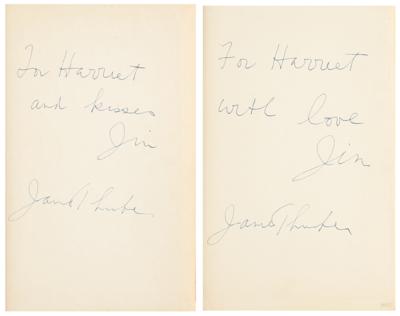 For Harriet
and kisses
Jim
James Thurber
For Harriet
with love
Jim
James Thurber